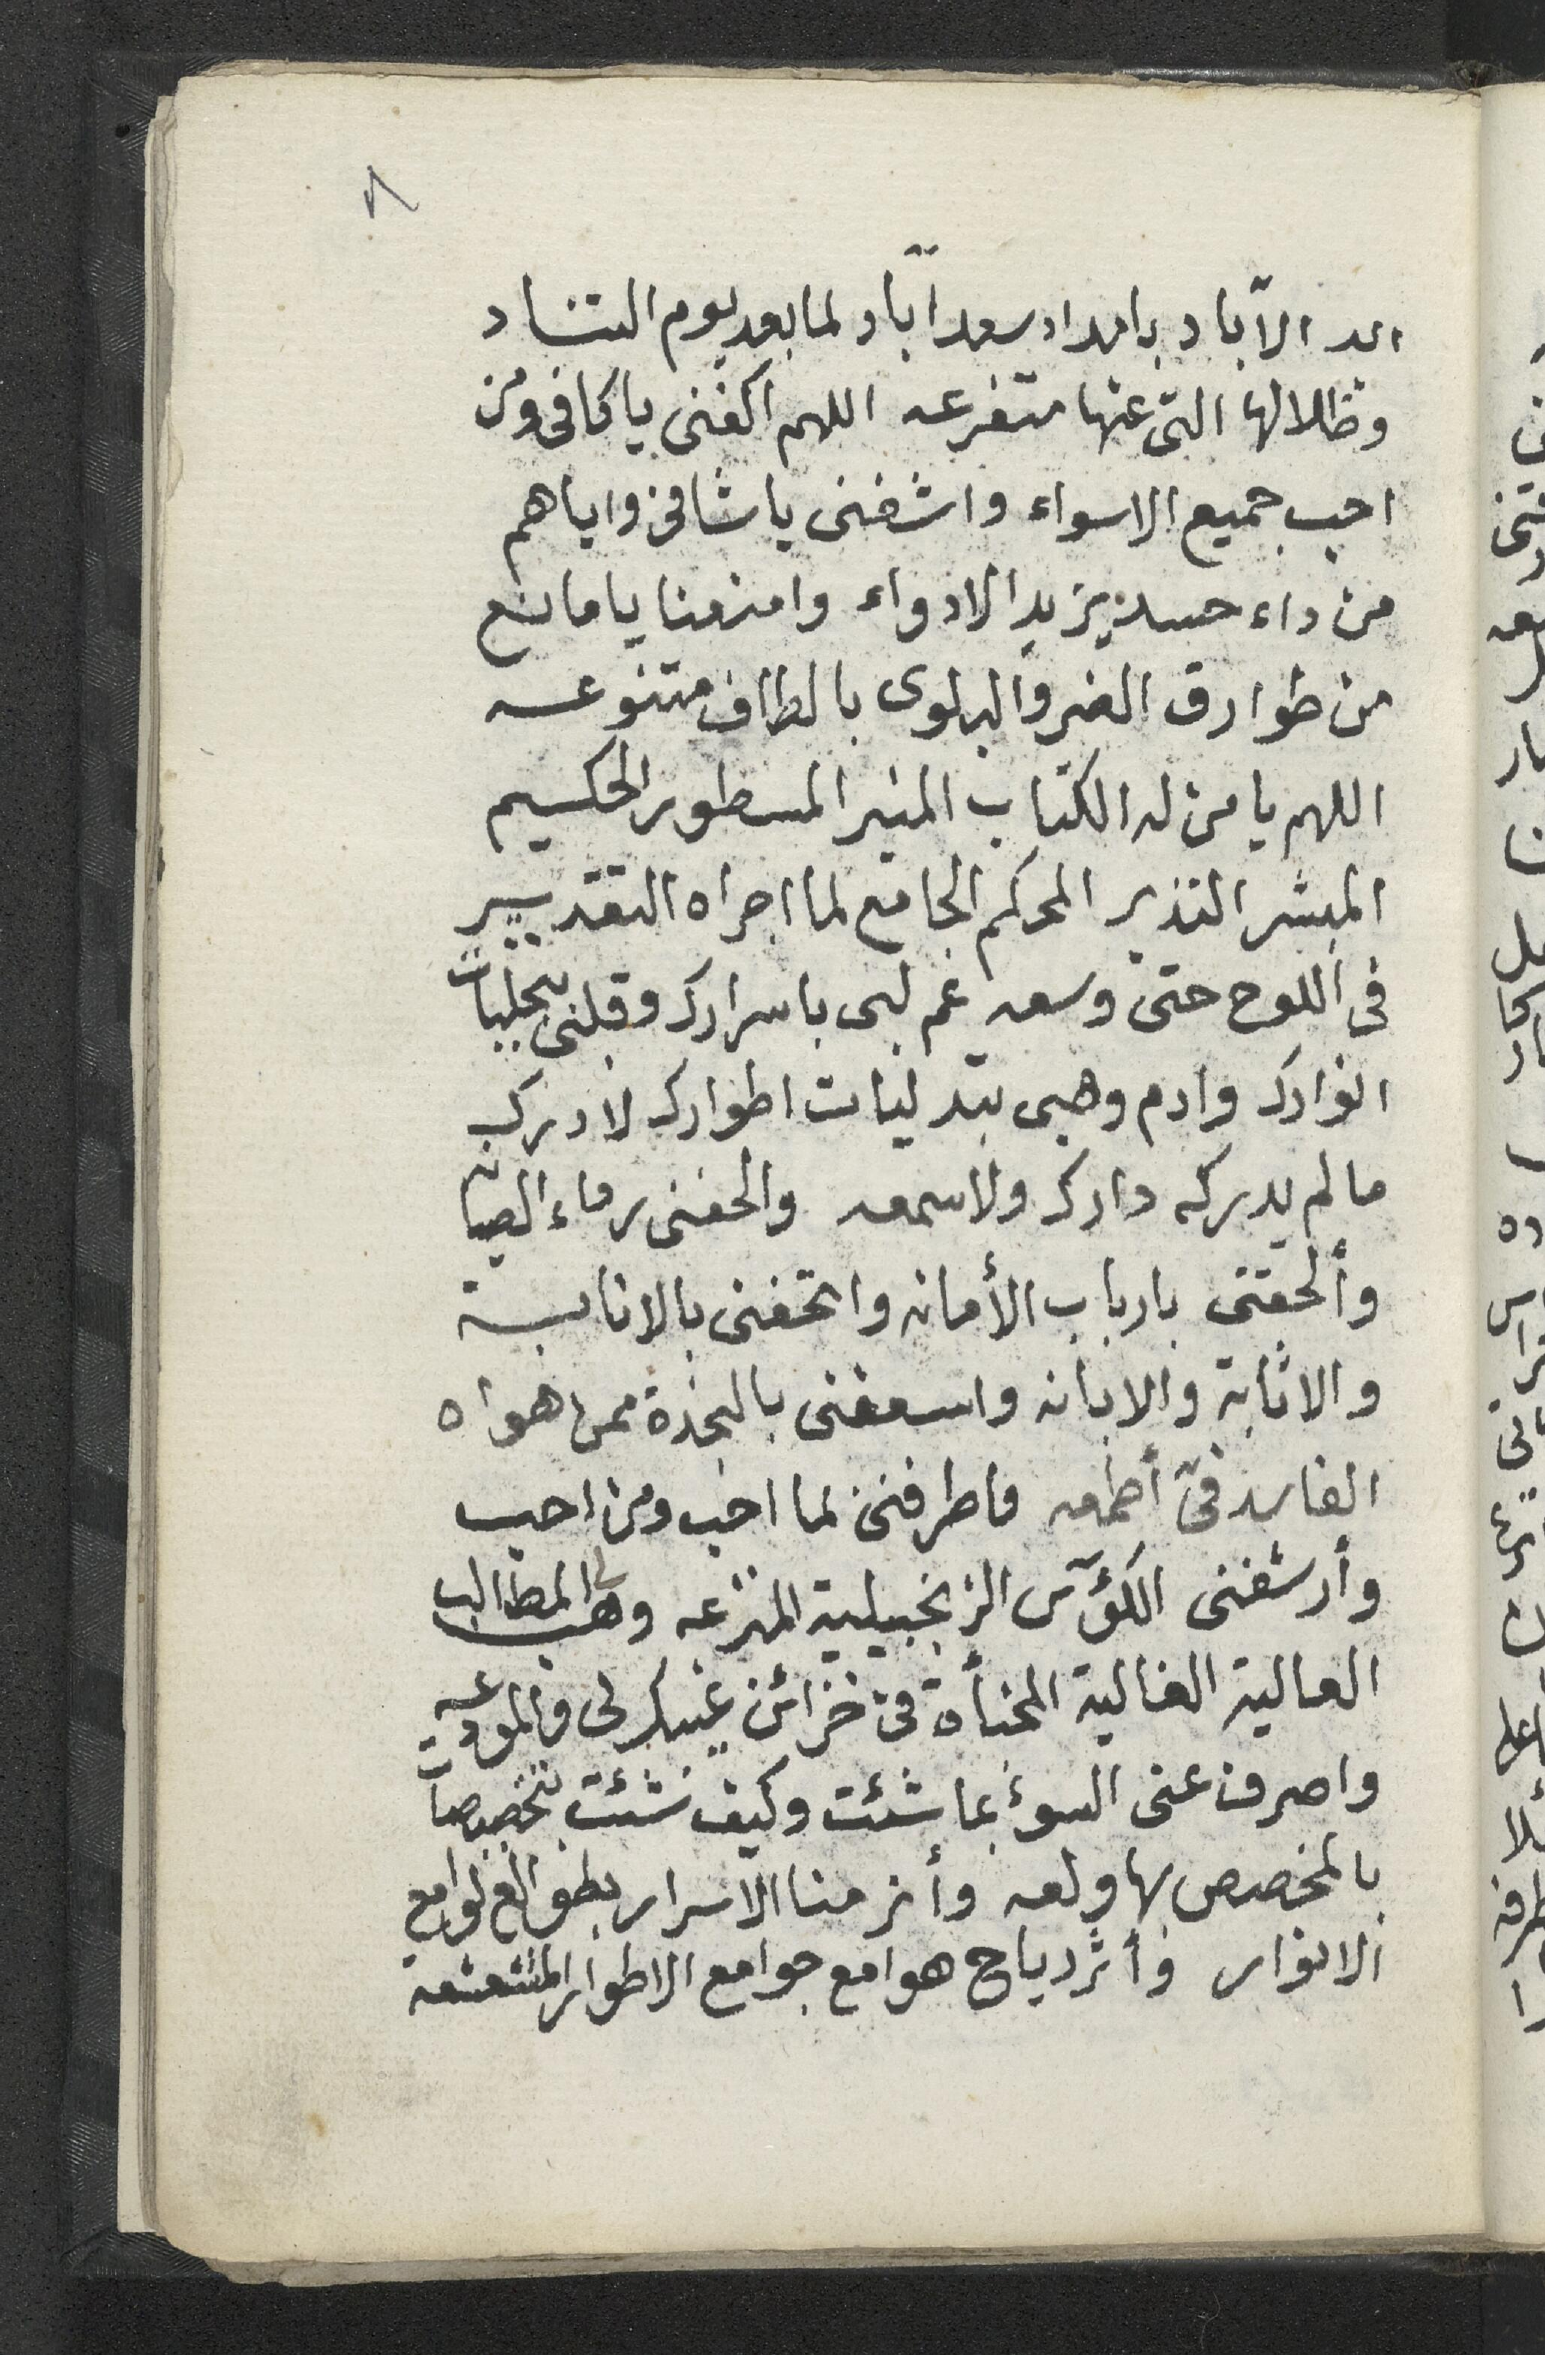 ٨
ابد الآباد بامداد سعد آباد لما بعد يوم التناد
وظلالها التى عنها متفرعه اللهم اكفنى يا كافى ومن
احب جميع الاسواء واشفنى يا شافى واياهم
من داء حسد يزيد الادواء وامنعنا يا مانع
من طوارق الضر والبلوى بالطاف متنوعه
اللهم يا من له الكتاب المنير المسطور الحكيم
المبشر النذير المحكم الجامع لما اجراه التقدير
فى اللوح حتى وسعه عم لبى باسرارك وقلبى بتجليات
انوارك وادم وهبى بتدليات اطوارك لادرك
ما لم يدركه دارك ولا سمعه والحفنى رداء الصيانه
وألحقنى بارباب الأمانه واتحفنى بالانابة
والاثابة والابانه واسعفنى بالنجدة ممن هواه
الفاسد فى أطمعه واطرفنى لما احب ومن احب
وأرشفنى الكؤس الزنجبيلية المترعه وهب لى المطالب
العالية الغالية المخبأة فى خزائن غيبك لى والمودعه
واصرف عنى السوء بما شئت وكيف شئت بتخصيصات
بالمخصص بها ولعه وأنر منا الاسرار بطوالع لوامع
الانوار وأثر دياح هوامع جوامع الاطوار المشعشعه